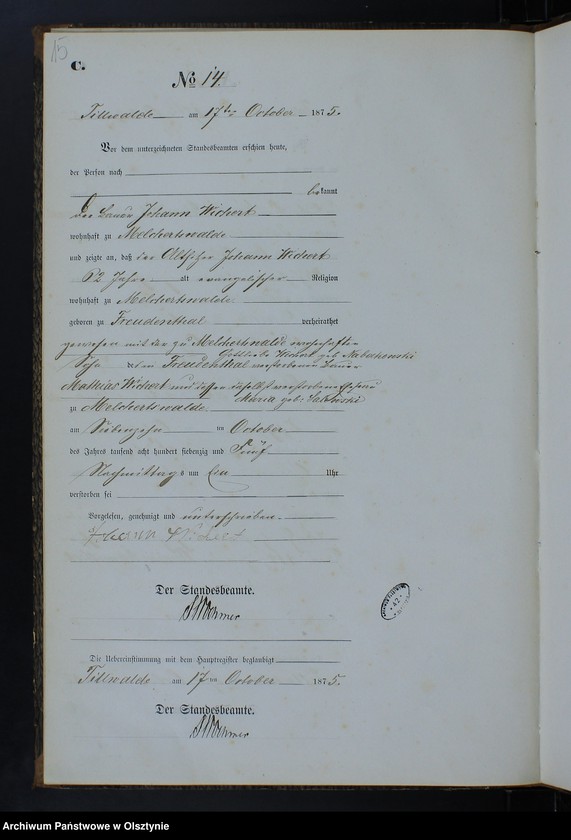 15
C.
No 14.
Tillwalde am 17ten October 1875.
Vor dem unterzeichneten Standesbeamten erschien heute,
der Person nach
bekannt
der Bauer Johann Wichert
wohnhaft zu Melchertswalde
und zeigte an, daß der Altsitzer Johann Wichert
62 Jahre alt evangelischer Religion
wohnhaft zu Melchertswalde
geboren zu Freudenthal verheirathet
gewesen mit der zu Melchertswalde wohnhaften
Gottliebe Wichert geb.
Sohn des in Freudenthal verstorbenen Bauer
Mathias Wichert und dessen daselbst verstorbenen Ehefrau
Maria geb.
zu Melchertswalde
am Siebenzehn ten October
des Jahres tausend acht hundert siebenzig und Fünf
Nachmittags um Ein Uhr
verstorben sei
Vorgelesen, genehmigt und unterschrieben.
Johann Wichert
Der Standesbeamte.
Die Uebereinstimmung mit dem Hauptregister beglaubigt
Tillwalde am 17ten October 1875.
Der Standesbeamte.
Archiwum Państwowe w Olsztynie